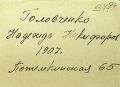 Головченко
Надежда Никифоров
1907.
Потемкинская 65